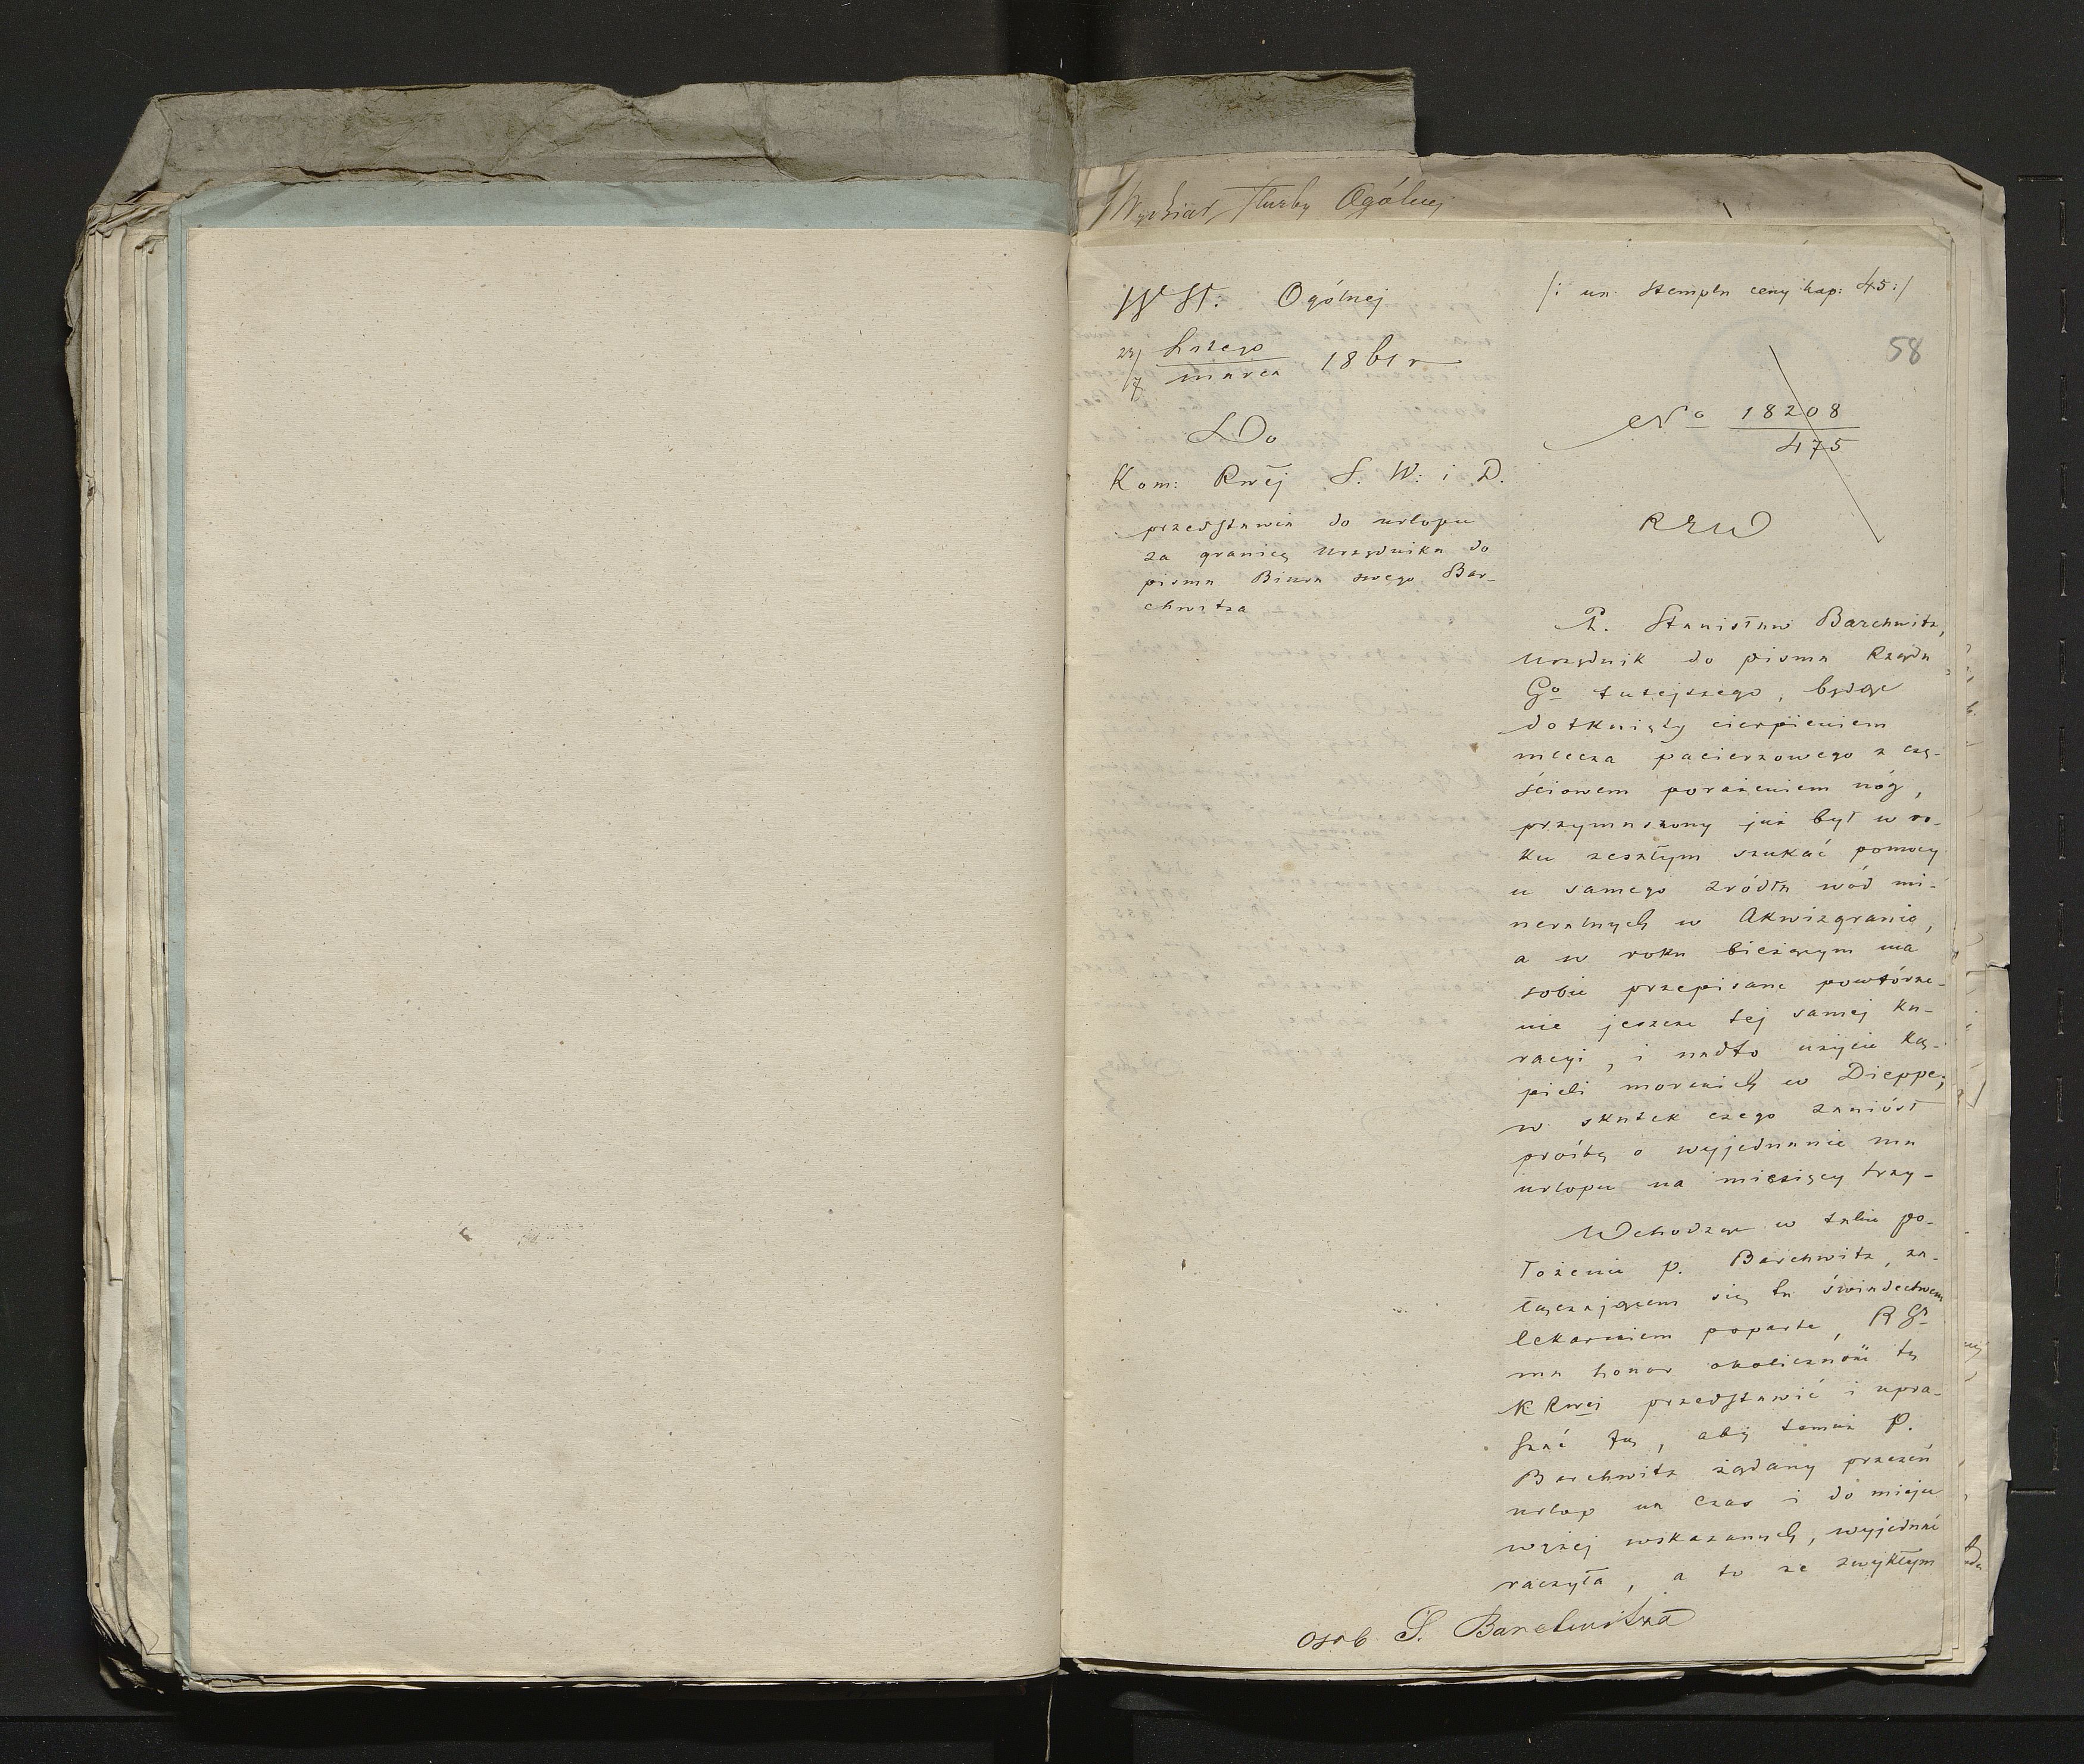 Wydział Służby Ogólnej
W. Sł. Ogólnej
/: na stemplu ceny kop: 45:/
58
23/7 Lutego/marca 1861 r
No 18208/475
Do
Kom: Rwéj S. W: i D.
przedstawia do urlopu
za granicę urzędnika do
pisma Biura swego Bar-
chwitza —
P. Stanisław Barchwitz,
urzędnik do pisma Rządu
Go tutejszego, będąc
dotknięty cierpieniem
mlecza pacierzowego z czę-
ściowem porażeniem nóg,
przymuszony już był w ro-
ku zeszłym szukać pomocy
u samego zródła wód mi-
neralnych w Akwizgranie,
a w roku bieżącym ma
sobie przepisane powtórze-
nie jeszcze tej samej ku-
racyi, i nadto użycie ką-
pieli morskich w Dieppe;
w skutek czego zaniósł
próśbę o wyjednanie mu
urlopu na miesięcy trzy -
Wchodząc w takie po-
łożenie p. Barchwitz, za-
łączającem się tu świadectwem
lekarskiem poparte, R Gn
ma honor okoliczność tę
K Rwéj przedstawić i upra-
szać ją, aby temuż P.
Barchwitz żądany przezeń
urlop na czas i do miejsc
wyżej wskazanych, wyjednać
raczyła, a to ze zwykłym
osob S. Barchwitza